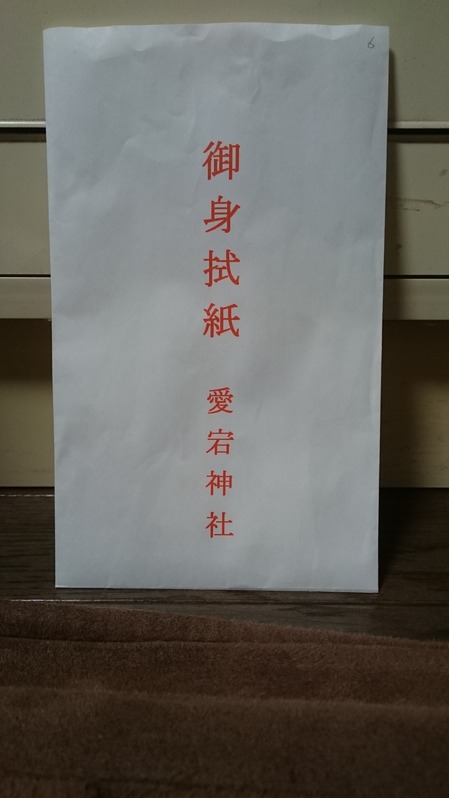 御身拭紙 愛宕神社
6